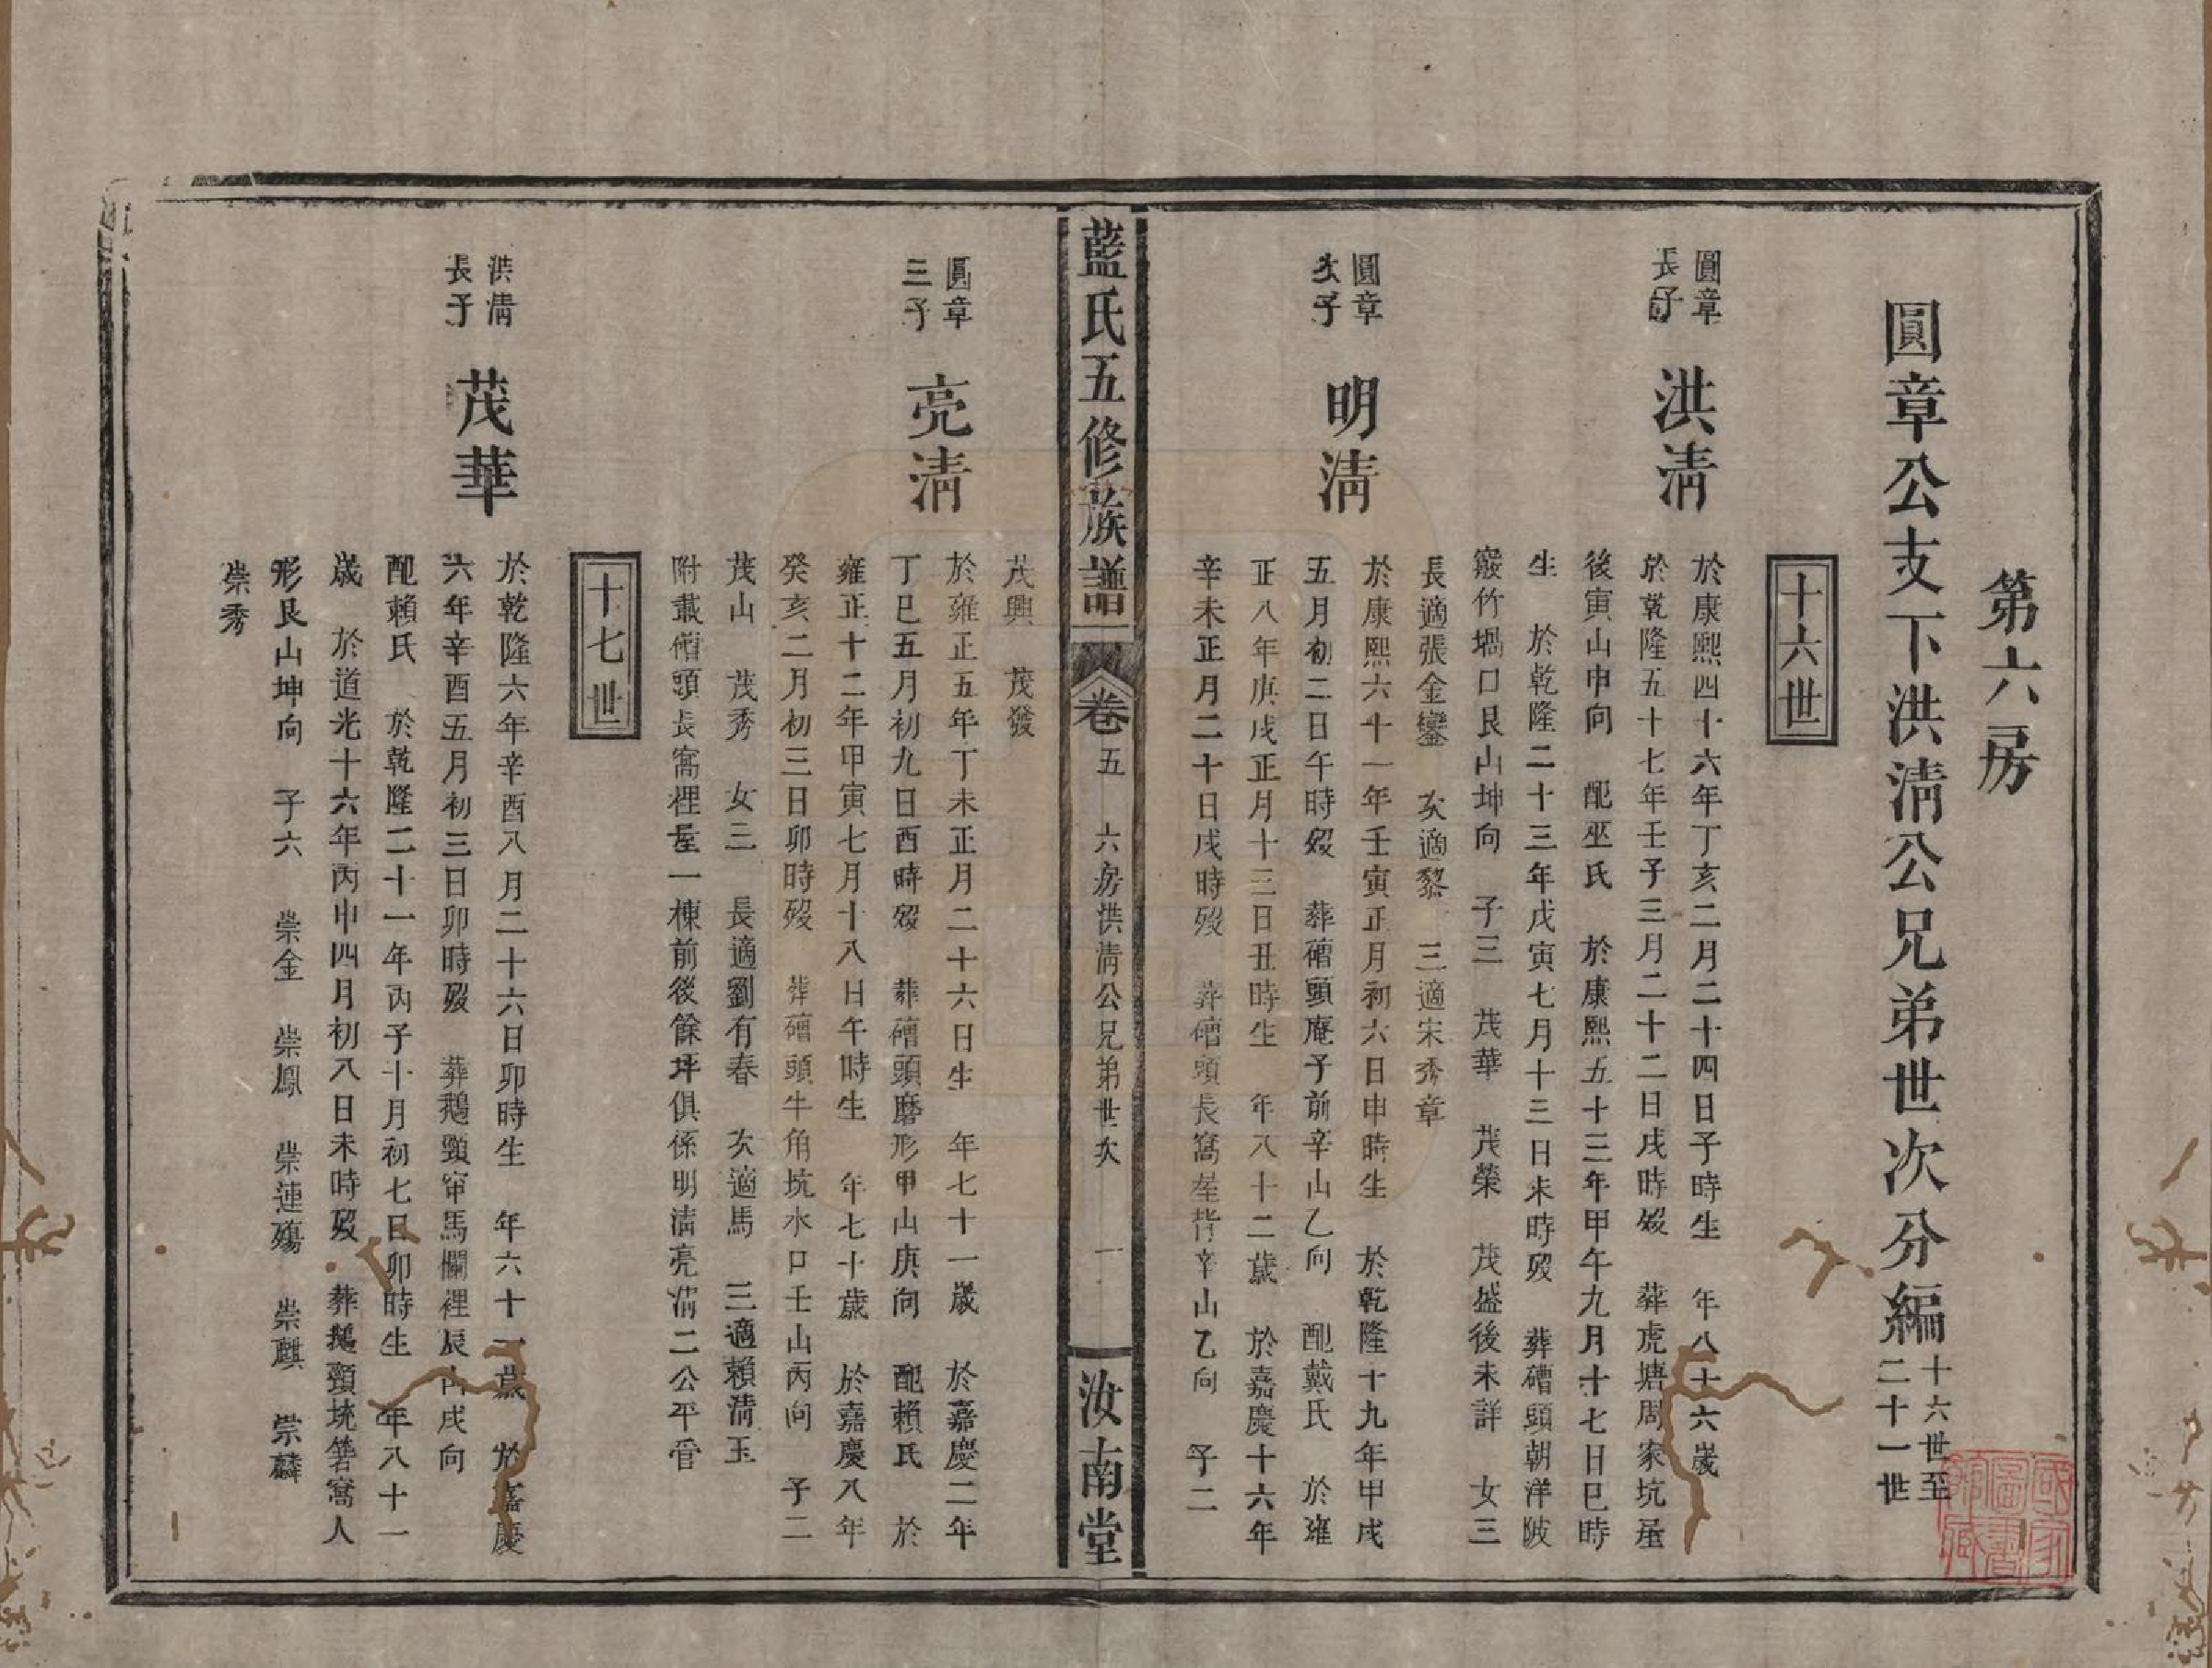 第六房
圓章公支下洪淸公兄弟世次分編
十六世至
二十一世
十六世
圓章
長子
洪淸
於康熙四十六年丁亥二月二十四日子時生 年八十六歲
於乾隆五十七年壬子三月二十二日戌時歿 葬虎塘周家坑屋
後寅山申向 配巫氏 於康熙五十三年甲午九月十七日巳時
生 於乾隆二十三年戊寅七月十三日未時歿 葬磳頭朝洋陂
窽竹堨口艮山坤向 子三 茂華 茂榮 茂盛後未詳 女三
長適張金鑾 次適黎 三適宋秀章
圓章
次子
明淸
於康熙六十一年壬寅正月初六日申時生 於乾隆十九年甲戌
五月初二日午時歿 葬磳頭庵子前辛山乙向 配戴氏 於雍
正八年庚戌正月十三日丑時生 年八十二歲 於嘉慶十六年
辛未正月二十日戌時歿 葬磳頭長窩屋背辛山乙向 子二
茂興 茂發
藍氏五修族譜
卷五 六房洪淸公兄弟世次 一
汝南堂
圓章
三子
亮淸
於雍正五年丁未正月二十六日生 年七十一歲 於嘉慶二年
丁巳五月初九日酉時歿 葬磳頭磨形甲山庚向 配賴氏 於
雍正十二年甲寅七月十八日午時生 年七十歲 於嘉慶八年
癸亥二月初三日卯時歿 葬磳頭牛角坑水口壬山丙向 子二
茂山 茂秀 女三 長適劉有春 次適馬 三適賴淸玉
附載磳頭長窩裡屋一棟前後餘坪俱係明淸亮淸二公平管
十七世
洪淸
長子
茂華
於乾隆六年辛酉八月二十六日卯時生 年六十一歲 於嘉慶
六年辛酉五月初三日卯時歿 葬鵝頸窜馬欄裡辰山戌向
配賴氏 於乾隆二十一年丙子十月初七日卯時生 年八十一
歲 於道光十六年丙申四月初八日未時歿 葬鵝頸坑箬窩人
形艮山坤向 子六 崇金 崇鳳 崇連殤 崇麒 崇麟
崇秀
國家
圖書
館藏